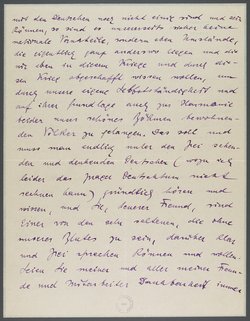 mit den Deutschen noch nicht einig sind und sein
können, so sind es unsererseits sicher keine
nationale Vorurteile, sondern eben Umstände,
die eigentlich ganz anderswo liegen und die
wir eben in diesem Kriege und durch die-
sen Krieg abgeschafft wissen wollen, um
durch unsere eigene Selbstständigkeit und
auf ihrer Grundlage auch zur Harmonie
beider unser schönes Böhmen bewohnen-
den Völker zu gelangen. Das soll und
muss man endlich unter den frei sehen-
den und denkenden Deutschen (wozu ich
leider das Prager Deutschtum nicht
rechnen kann) gründlich hören und
wissen, und Sie, teuerer Freund, sind
Einer von den sehr seltenen, die ohne
unseres Blutes zu sein, darüber klar
und frei sprechen können und wollen.
Seien Sie meiner und aller meiner Freun-
de und Mitarbeiter Dankbarkeit immer